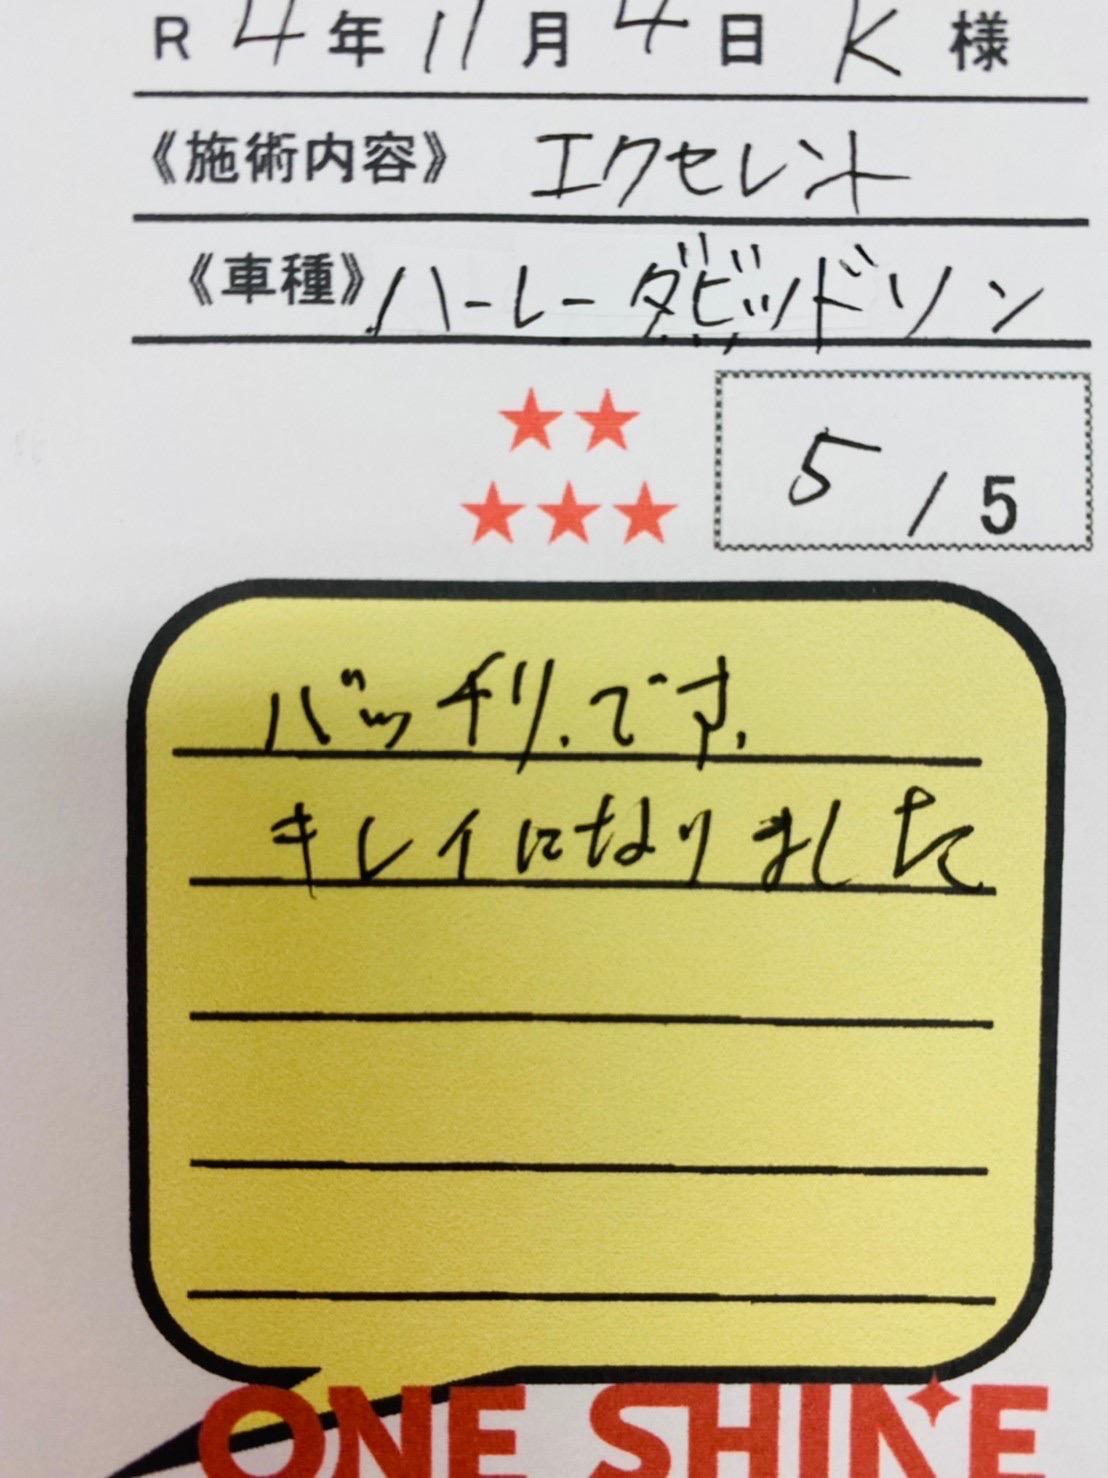 R 4年 11月 4日 K 様
《施術内容》 エクセレント
《車種》 ハーレーダビッドソン
★★
★★★
5 / 5
バッチリ.です.
キレイになりました
ONE SHINE